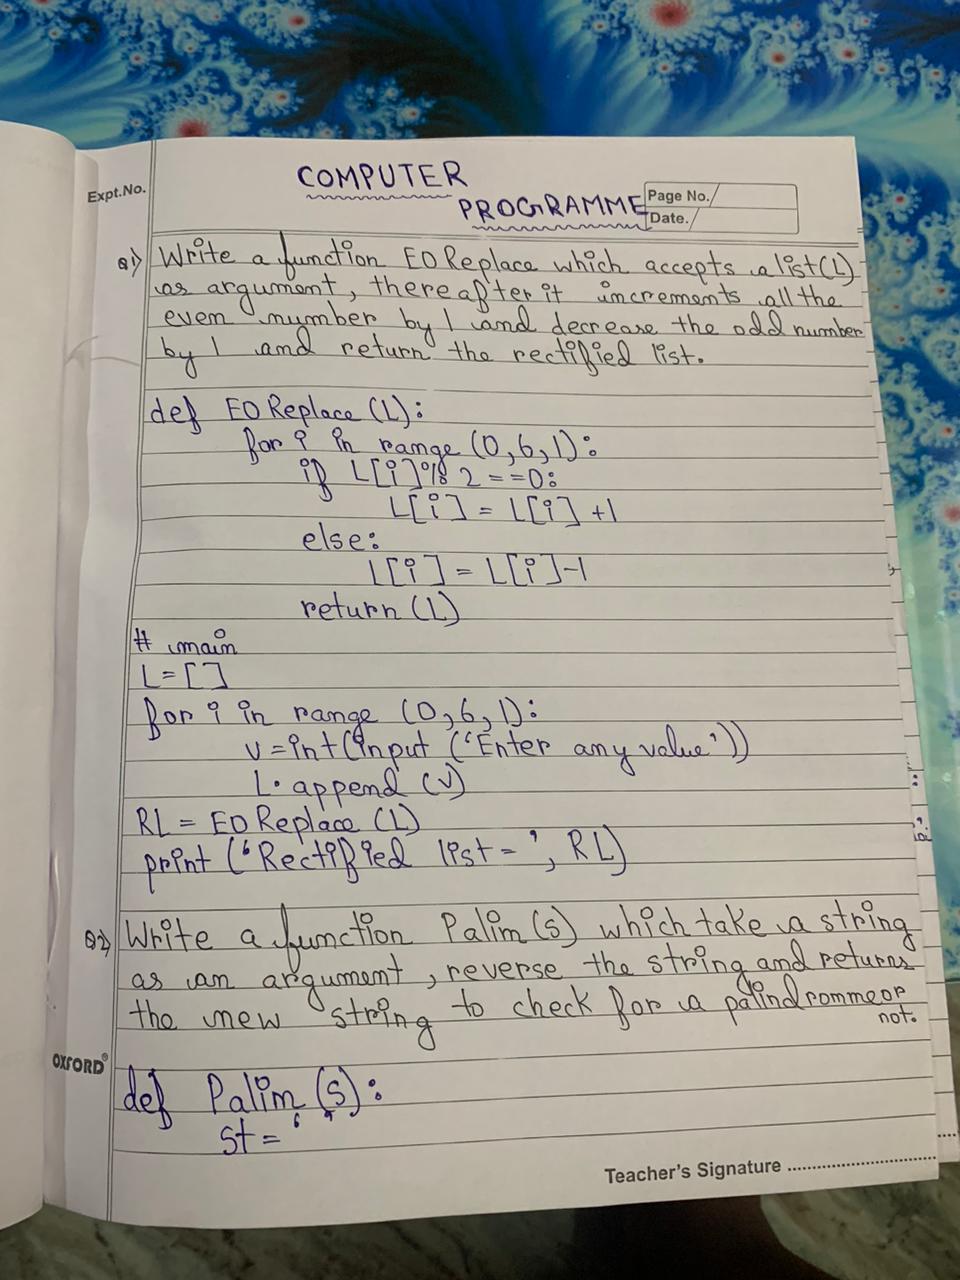 COMPUTER
PROGRAMME
Expt.No.
Page No.
Date.
Q1) Write a function EO Replace which accepts a list(L)
as argument, thereafter it increments all the
even number by 1 and decrease the odd number
by 1 and return the rectified list.
def EO Replace (L):
for i in range (0,6,1):
if L[i]%2==0:
L[i] = L[i] +1
else:
L[i] = L[i]-1
return (L)
# main
L=[]
for i in range (0,6,1):
v=int(input ('Enter any value'))
L.append (v)
RL = EO Replace (L)
print ('Rectified list=', RL)
Q2) Write a function Palim(s) which take a string
as an argument, reverse the string and returns
the new string to check for a palindromme or
not.
def Palim (s):
st = ' '
OXFORD®
Teacher's Signature ..............................